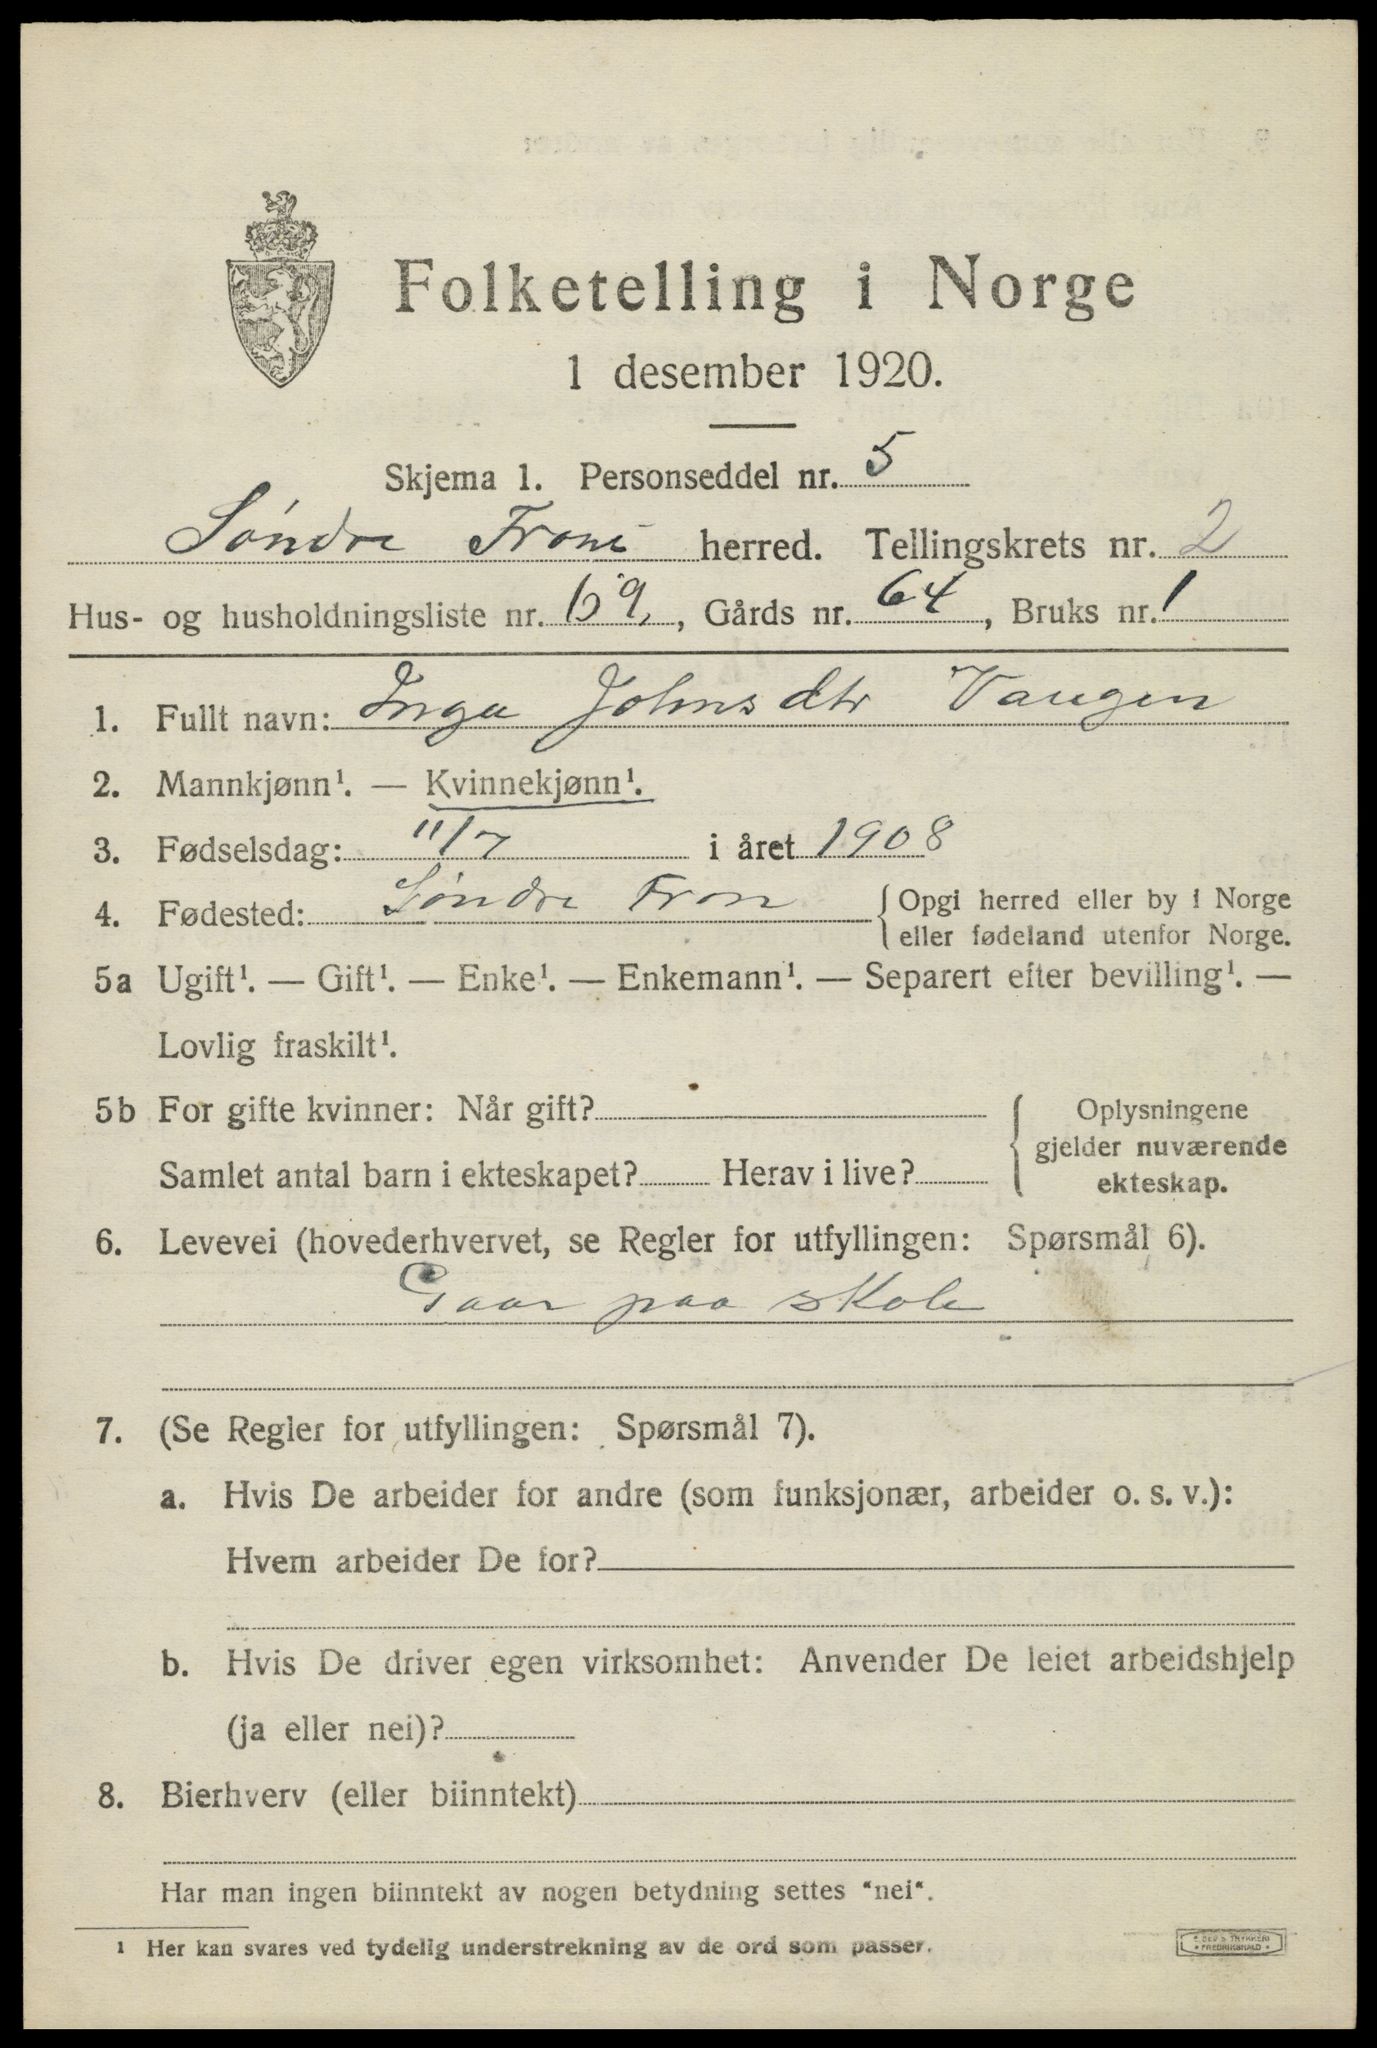 Folketelling i Norge
1 desember 1920.
Skjema 1. Personseddel nr. 5
Søndre Fron herred. Tellingskrets nr. 2
Hus- og husholdningsliste nr. 69, Gårds nr. 64, Bruks nr. 1
1. Fullt navn: Inga Johnsdtr Vangen
2. Mannkjønn¹. — Kvinnekjønn¹.
3. Fødselsdag: 11/7 i året 1908
4. Fødested: Søndre Fron {Opgi herred eller by i Norge
eller fødeland utenfor Norge.
5a Ugift¹. — Gift¹. — Enke¹. — Enkemann¹. — Separert efter bevilling¹. —
Lovlig fraskilt¹.
5b For gifte kvinner: Når gift? Oplysningene
gjelder nuværende
Samlet antal barn i ekteskapet? Herav i live? ekteskap.
6. Levevei (hovederhvervet, se Regler for utfyllingen: Spørsmål 6).
Gaar paa skole
7. (Se Regler for utfyllingen: Spørsmål 7).
a. Hvis De arbeider for andre (som funksjonær, arbeider o. s. v.):
Hvem arbeider De for?
b. Hvis De driver egen virksomhet: Anvender De leiet arbeidshjelp
(ja eller nei)?
8. Bierhverv (eller biinntekt)
Har man ingen biinntekt av nogen betydning settes "nei".
1 Her kan svares ved tydelig understrekning av de ord som passer.